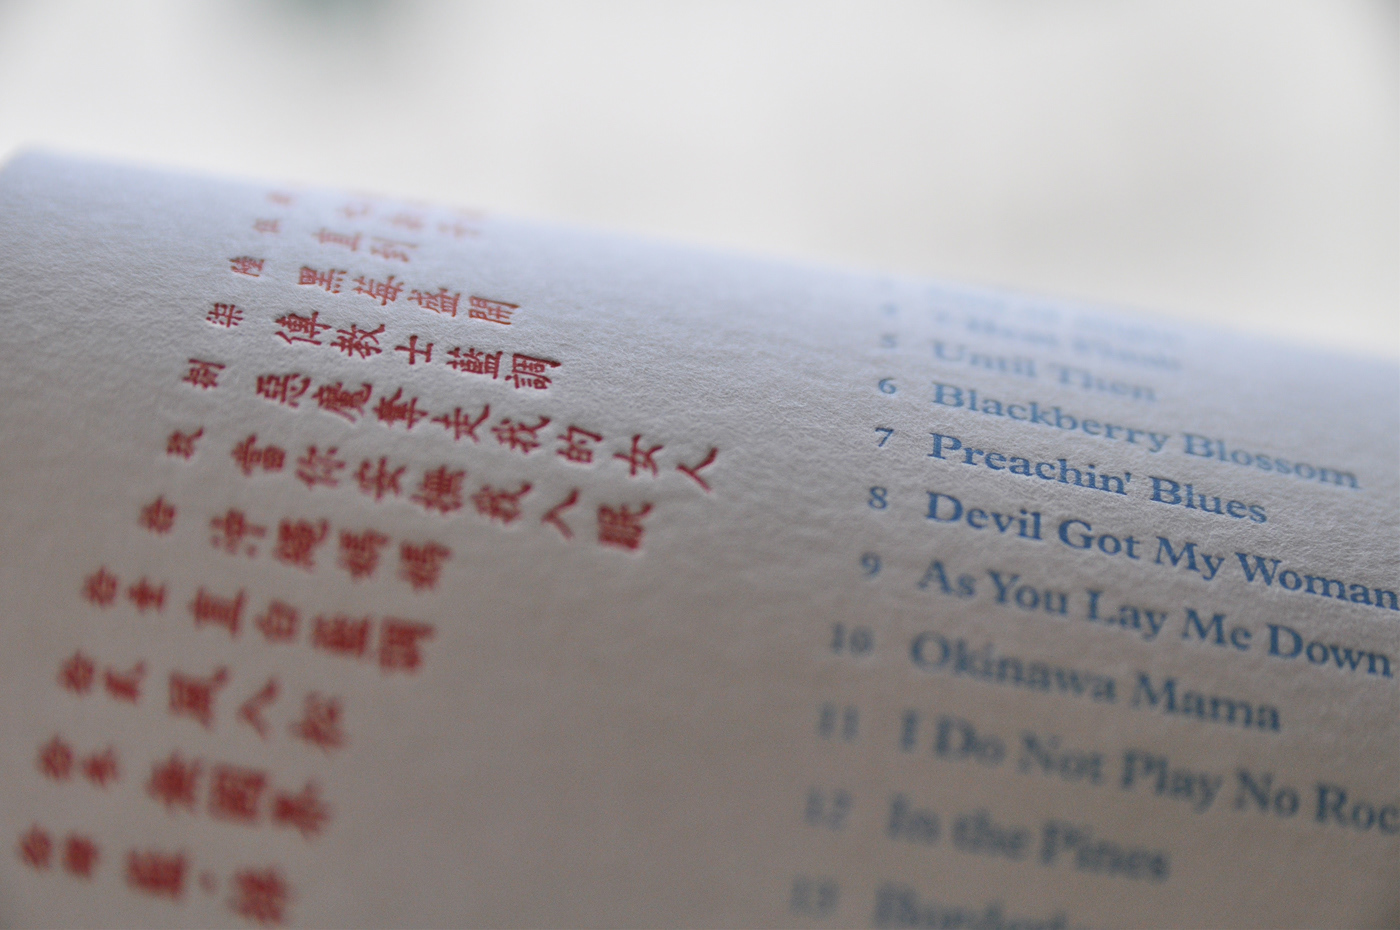 伍 直到
陸 黑莓盛開
柒 傳教士藍調
捌 惡魔奪走我的女人
玖 當你安撫我入眠
拾 沖繩媽媽
拾壹 直白藍調
拾貳 風入松
拾叁 無國界
5 Until Then
6 Blackberry Blossom
7 Preachin' Blues
8 Devil Got My Woman
9 As You Lay Me Down
10 Okinawa Mama
11 I Do Not Play No Roc
12 In the Pines
13